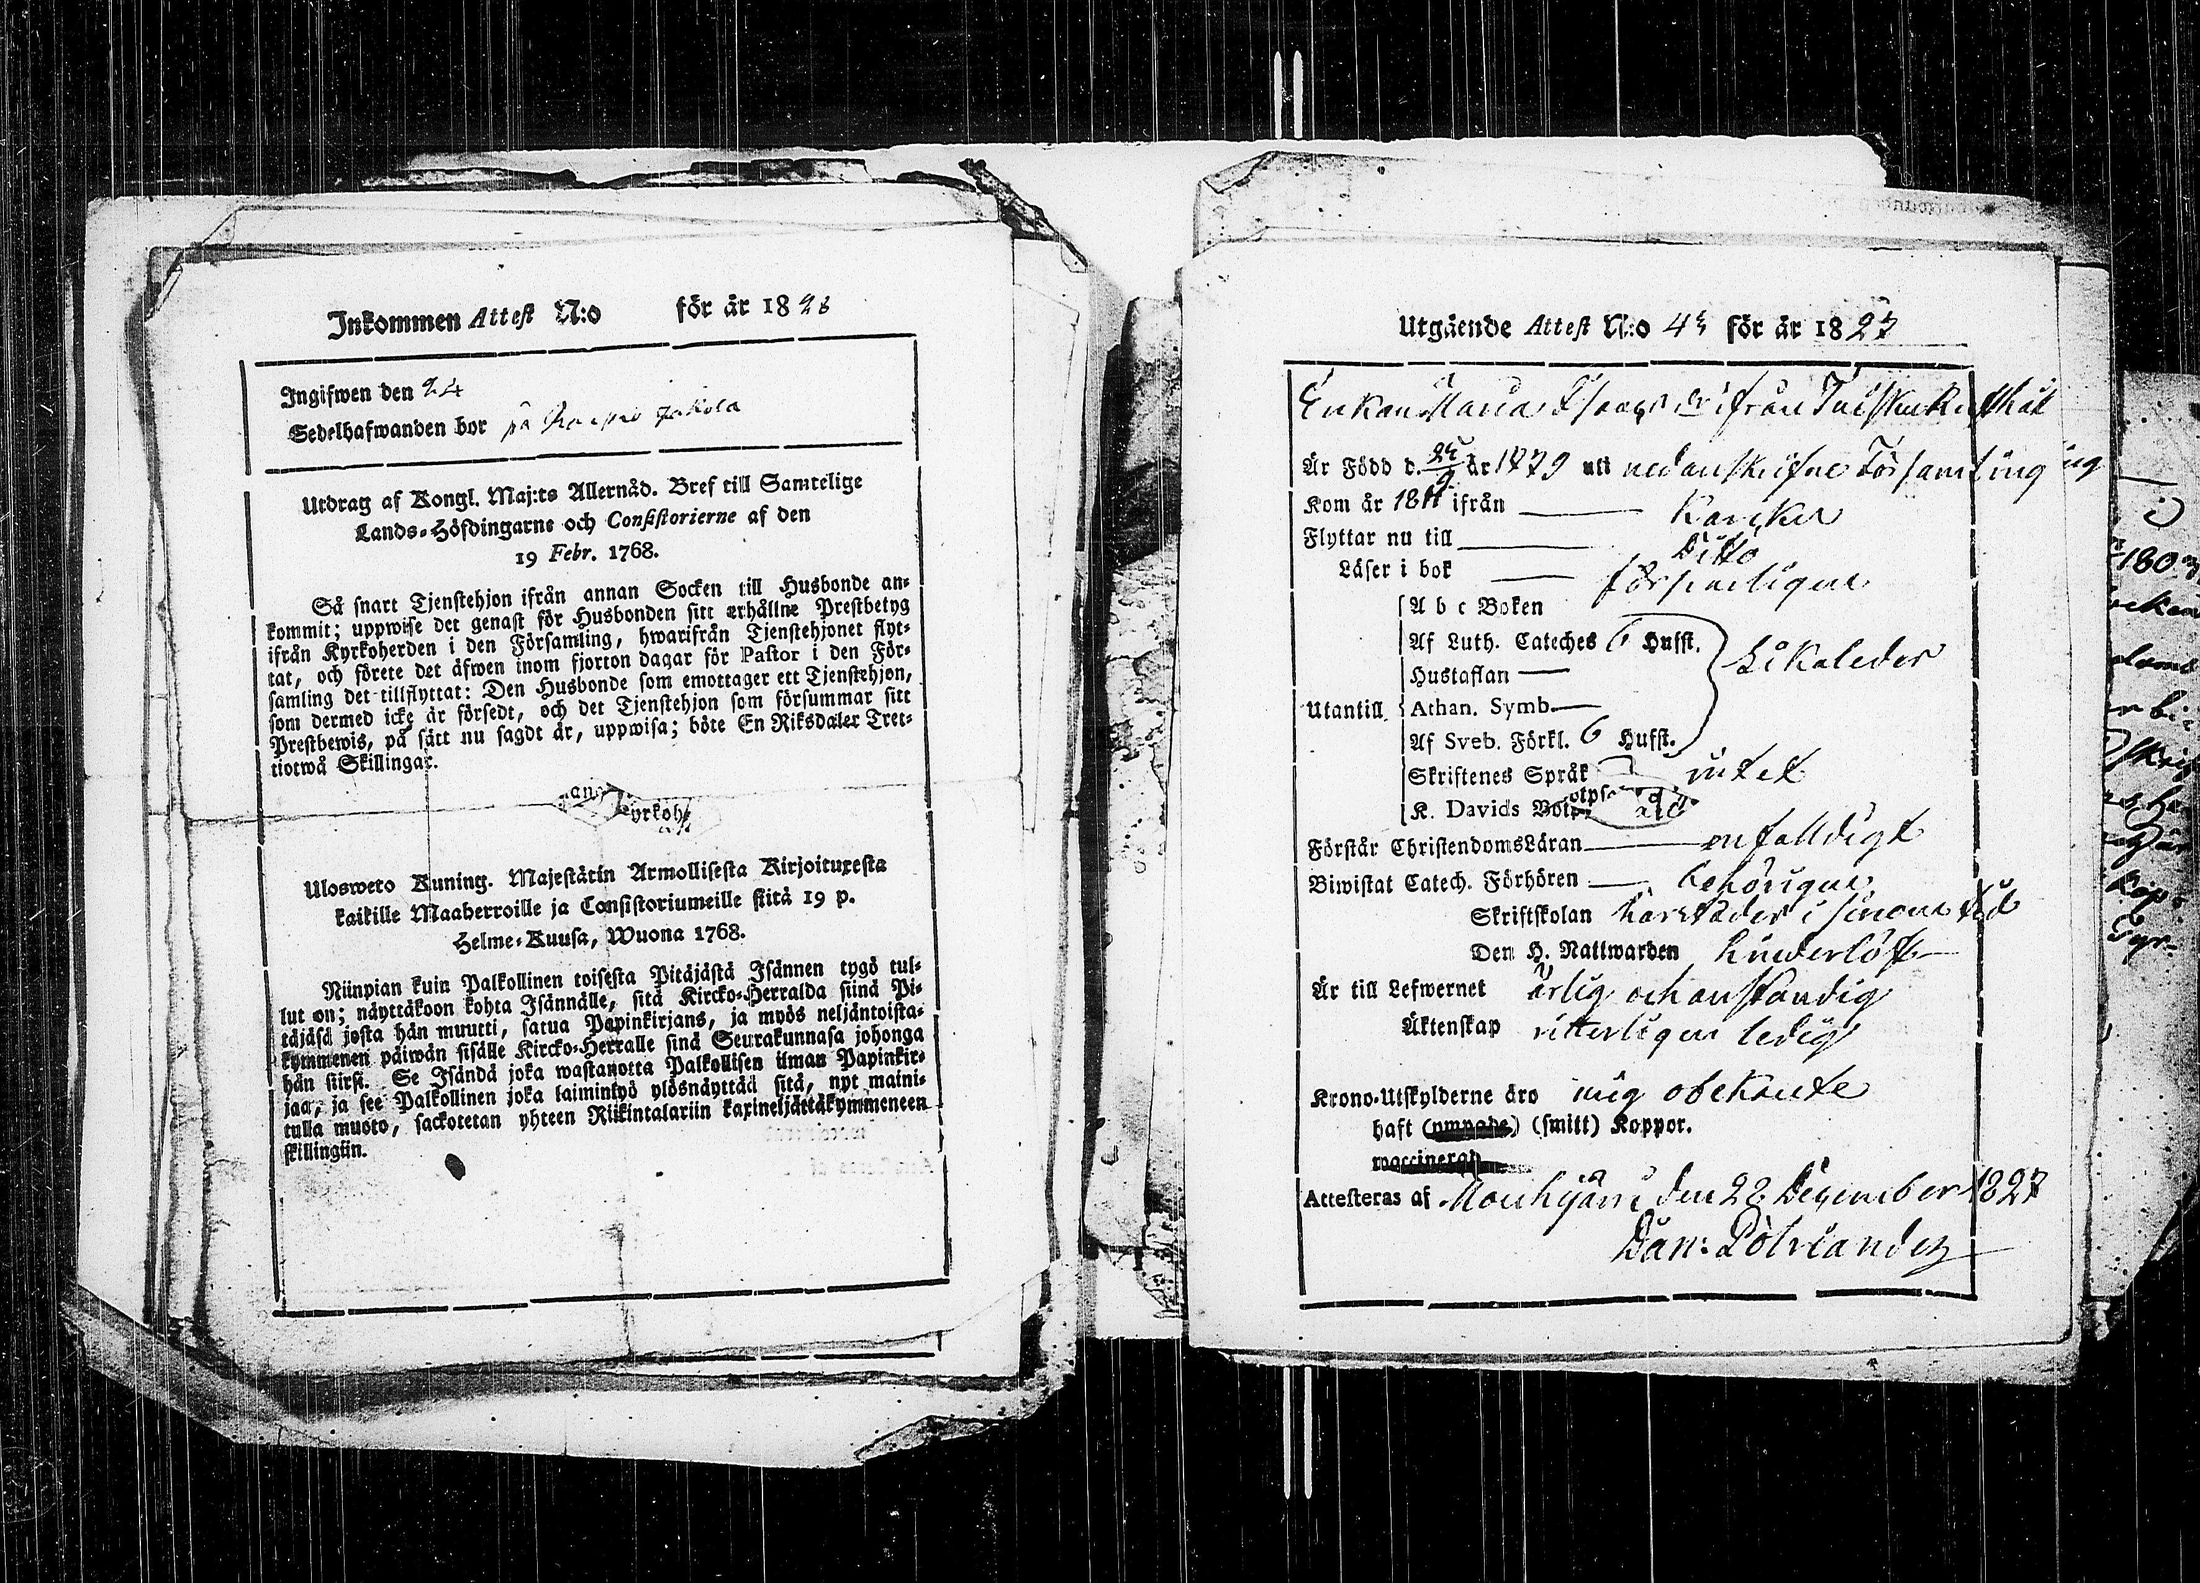 Inkommen Attest N:o för år 1828
Ingifwen den 24
Sedelhafwanden bor på
Utdrag af Kongl. Maj:ts Allernåd. Bref till Samtelige
Lands-Höfdingarne och Consistorierne af den
19 Febr. 1768.
Så snart Tjenstehjon ifrån annan Socken till Husbonde an-
kommit; uppwise det genast för Husbonden sitt erhållne Prestbetyg
ifrån Kyrkoherden i den Församling, hwarifrån Tjenstehjonet flyt-
tat, och förete det äfwen inom fjorton dagar för Pastor i den För-
samling det tillflyttat: Den Husbonde som emottager ett Tjenstehjon,
som dermed icke är försedt, och det Tjenstehjon som försummar sitt
Prestbewis, på sätt nu sagdt är, uppwisa; böte En Riksdaler Tret-
tiotwå Skillingar.
Ulosweto Kuning. Majestätin Armollisesta Kirjoituxesta
kaikille Maaherroille ja Consistoriumeille siitä 19 p.
Helme-Kuusa, Wuona 1768.
Niinpian kuin Palkollinen toisesta Pitäjästä Isännen tygö tul-
lut on; näyttäkoon kohta Isännälle, sitä Kircko-Herralda siinä Pi-
täjäsä josta hän muutti, saatua Papinkirjans, ja myös neljäntoista-
kymmenen päiwän sisälle Kircko-Herralle siinä Seurakunnasa johonga
hän siirsi. Se Isändä joka wastanotta Palkollisen ilman Papinkir-
jaa, ja see Palkollinen joka laimintyö ylösnäyttää sitä, nyt maini-
tulla muoto, sackotetan yhteen Riikintalariin kaxineljättäkymmeneen
skillingiin.
Utgående Attest N:o för år 1827
Enkan Maria Isaacsdr ifrån
Är Född d. 24/9 år 1779 uti nedanskrifne Församling
Kom år 18 ifrån Karcku
Flyttar nu till Ditto
Läser i bok försvarligen
A b c Boken
Af Luth. Cateches 6 Hufst. Likaledes
Hustaflan
Utantill Athan. Symb.
Af Sveb. Förkl. 6 Hufst.
Skriftenes Språk intet
K. Davids
Förstår ChristendomsLäran enfalldigt
Biwistat Catech. Förhören behörigen
Skriftskolan härstädes i sinom tid
Den H. Nattwarden
Är till Lefwernet ärlig och anständig
Äktenskap witterligen ledig
Krono-Utskylderne äro mig obekante
haft (smitt) Koppor.
Attesteras af Mouhijärvi den 28 December 1827
Dan: